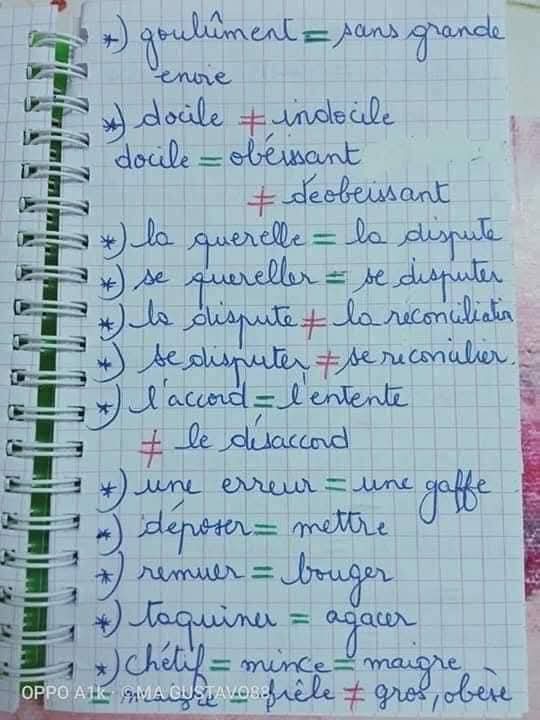 *) goulûment = sans grande
envie
*) docile ≠ indocile
docile = obéissant
≠ déobeissant
*) la querelle = la dispute
*) se quereller = se disputer
*) la dispute ≠ la réconciliation
*) se disputer ≠ se reconcilier.
*) l'accord = l'entente
≠ le désaccord
*) une erreur = une gaffe
*) déposer = mettre
*) remuer = bouger
*) taquiner = agacer
*) chétif = mince = maigre
= = frêle ≠ gros, obèse
OPPO A1k · ©MA GUSTAVO88